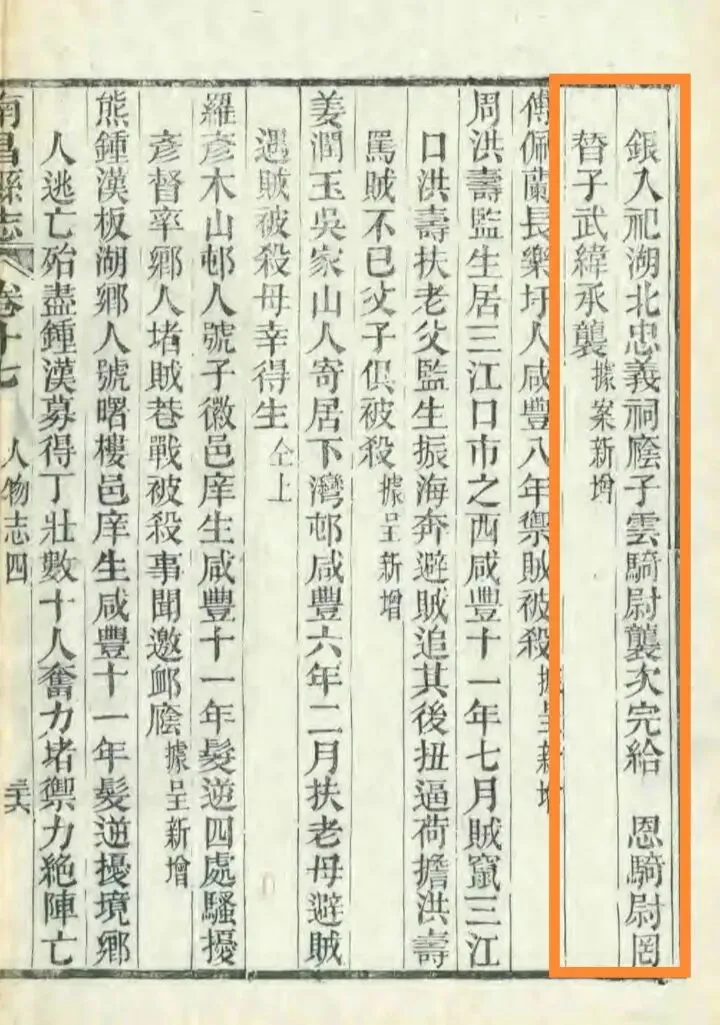 銀入祀湖北忠義祠廕子雲騎尉襲次完給　恩騎尉罔
替子武緯承襲據案新增
傅佩蘭長樂圩人咸豐八年禦賊被殺據呈新增
周洪壽監生居三江口市之西咸豐十一年七月賊竄三江
口洪壽扶老父監生振海奔避賊追其後扭逼荷擔洪壽
罵賊不已父子俱被殺據呈新增
姜潤玉吳家山人寄居下灣邨咸豐六年二月扶老母避賊
遇賊被殺母幸得生仝上
羅彥木山邨人號子徽邑庠生咸豐十一年髮逆四處騷擾
彥督率鄉人堵賊巷戰被殺事聞邀卹廕據呈新增
熊鍾漢板湖鄉人號曙樓邑庠生咸豐十一年髮逆擾境鄉
人逃亡殆盡鍾漢募得丁壯數十人奮力堵禦力絕陣亡
南昌縣志　卷十七　人物志四　三六